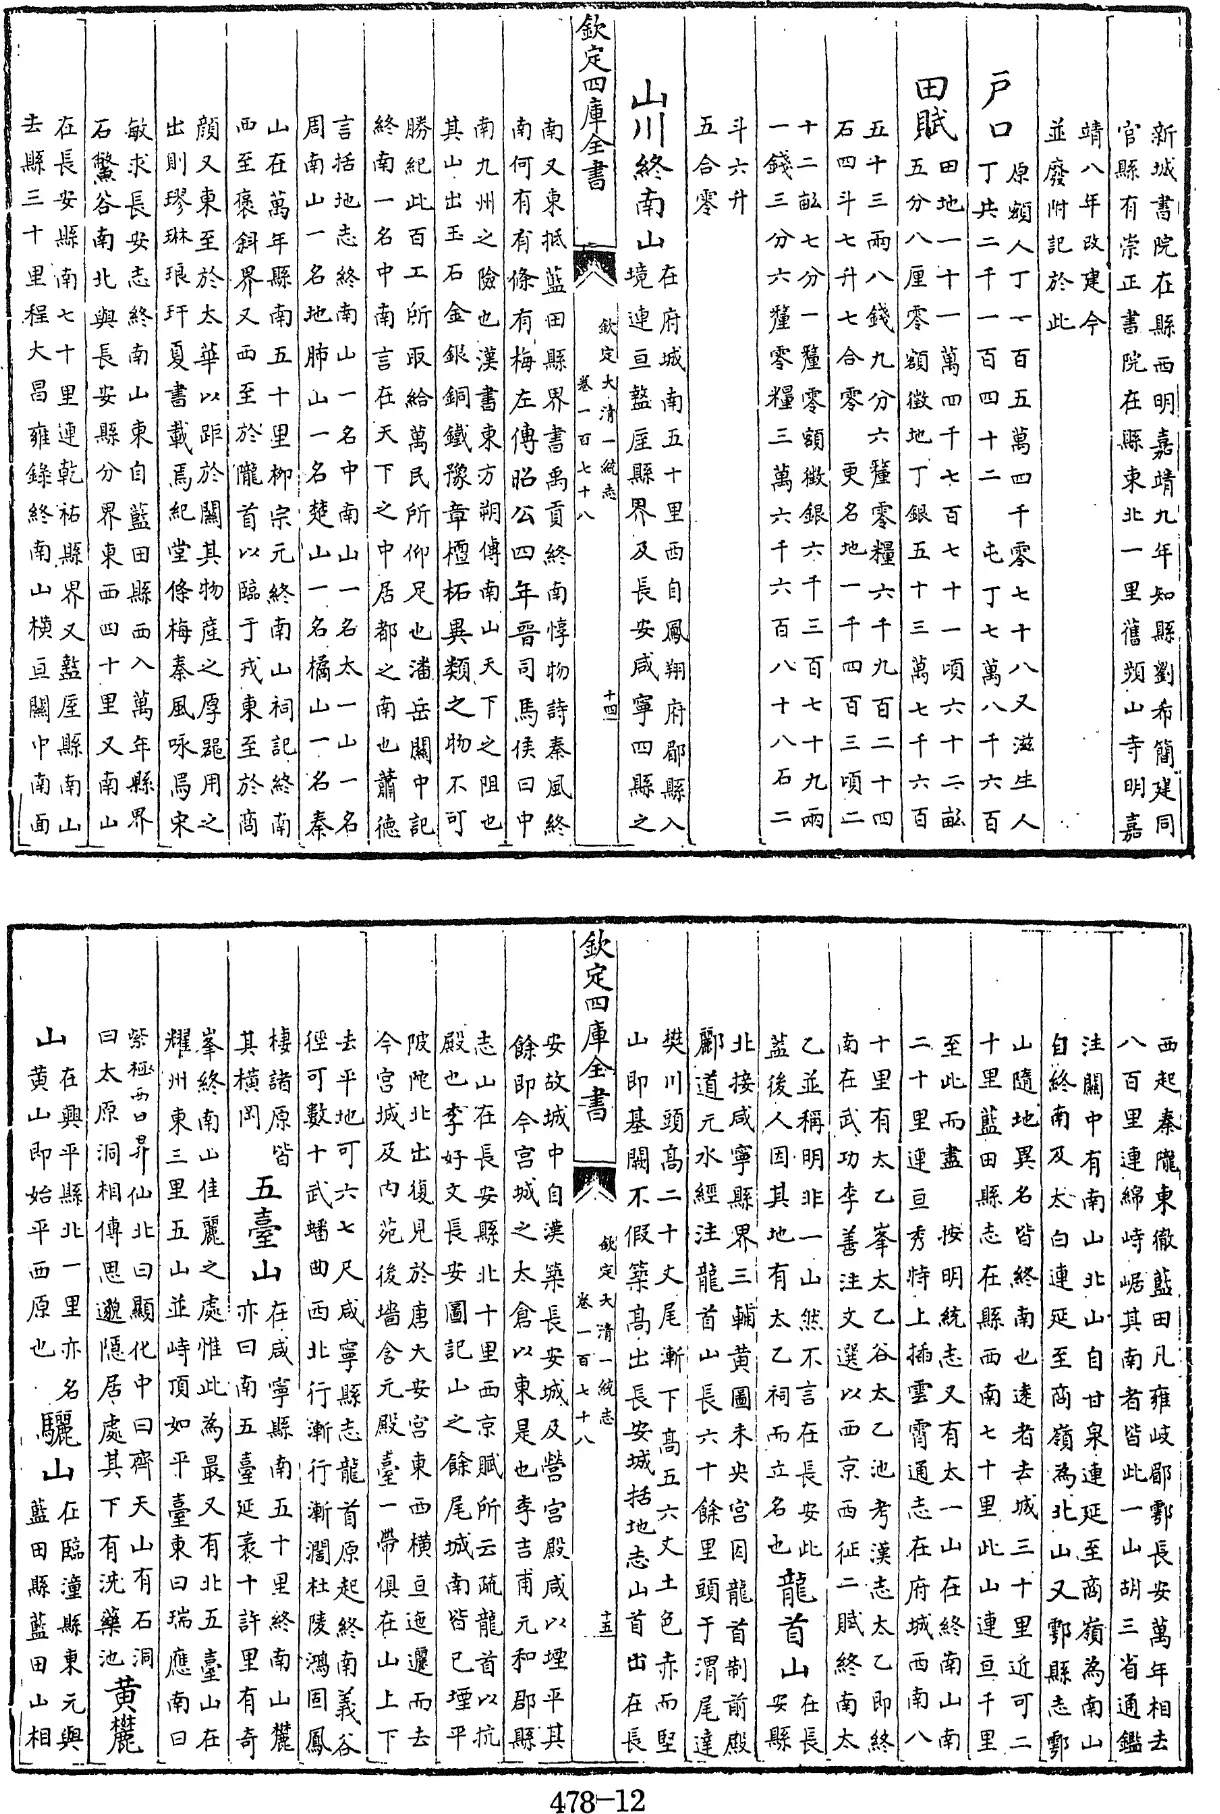 新城書院在縣西明嘉靖九年知縣劉希簡建同
官縣有崇正書院在縣東北一里舊頻山寺明嘉
靖八年改建今
並廢附記於此
戶口 原額人丁一百五萬四千零七十八又滋生人
丁共二千一百四十二 屯丁七萬八千六百
田賦 田地一十一萬四千七百七十一頃六十二畝
五分八厘零額徵地丁銀五十三萬七千六百
五十三兩八錢九分六釐零糧六千九百二十四
石四斗七升七合零 更名地一千四百三頃二
十二畝七分一釐零額徵銀六千三百七十九兩
一錢三分六釐零糧三萬六千六百八十八石二
斗六升
五合零
山川終南山 在府城南五十里西自鳳翔府郿縣入
境連亘盩厔縣界及長安咸寧四縣之
欽定四庫全書 欽定大清一統志
卷一百七十八 十四
南又東抵藍田縣界書禹貢終南惇物詩秦風終
南何有有條有梅左傳昭公四年晉司馬侯曰中
南九州之險也漢書東方朔傳南山天下之阻也
其山出玉石金銀銅鐵豫章檀柘異類之物不可
勝紀此百工所取給萬民所仰足也潘岳關中記
終南一名中南言在天下之中居都之南也蕭德
言括地志終南山一名中南山一名太一山一名
周南山一名地肺山一名楚山一名橘山一名秦
山在萬年縣南五十里柳宗元終南山祠記終南
西至褒斜界又西至於隴首以臨于戎東至於商
顏又東至於太華以距於關其物產之厚噐用之
出則璆琳琅玕夏書載焉紀堂條梅秦風咏焉宋
敏求長安志終南山東自藍田縣西入萬年縣界
石鱉谷南北與長安縣分界東西四十里又南山
在長安縣南七十里連乾祐縣界又盩厔縣南山
去縣三十里程大昌雍錄終南山橫亘關中南面
西起秦隴東徹藍田凡雍岐郿鄠長安萬年相去
八百里連綿峙崌其南者皆此一山胡三省通鑑
注關中有南山北山自甘泉連延至商嶺為南山
自終南及太白連延至商嶺為北山又鄠縣志鄠
山隨地異名皆終南也逺者去城三十里近可二
十里藍田縣志在縣西南七十里此山連亘千里
至此而盡 按明統志又有太一山在終南山南
二十里連亘秀特上插雲霄通志在府城西南八
十里有太乙峯太乙谷太乙池考漢志太乙即終
南在武功李善注文選以西京西征二賦終南太
乙並稱明非一山然不言在長安此
葢後人因其地有太乙祠而立名也 龍首山 在長
安縣
北接咸寧縣界三輔黃圖未央宮因龍首制前殿
酈道元水經注龍首山長六十餘里頭于渭尾達
樊川頭髙二十丈尾漸下髙五六丈土色赤而堅
山即基闕不假築髙出長安城括地志山首出在長
欽定四庫全書 欽定大清一統志
卷一百七十八 十五
安故城中自漢築長安城及營宮殿咸以堙平其
餘即今宮城之太倉以東是也李吉甫元和郡縣
志山在長安縣北十里西京賦所云疏龍首以抗
殿也李好文長安圖記山之餘尾城南皆已堙平
陂陀北出復見於唐大安宮東西橫亘迤邐而去
今宮城及內苑後墻含元殿臺一帶俱在山上下
去平地可六七尺咸寧縣志龍首原起終南義谷
徑可數十武蟠曲西北行漸行漸濶杜陵鴻固鳳
棲諸原皆
其橫岡 五臺山 在咸寧縣南五十里終南山麓
亦曰南五臺延袤十許里有奇
峯終南山佳麗之處惟此為最又有北五臺山在
耀州東三里五山並峙頂如平臺東曰瑞應南曰
紫極西曰昇仙北曰顯化中曰齊天山有石洞
曰太原洞相傳思邈隱居處其下有洗藥池 黄麓
山 在興平縣北一里亦名
黄山即始平西原也 驪山 在臨潼縣東元與
藍田縣藍田山相
478-12